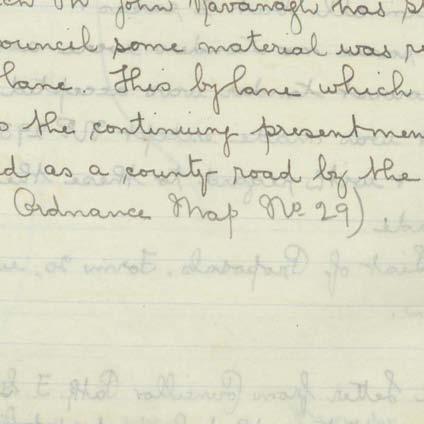 Mr John Kavanagh has
council some material was
lane. This bylane which
the continuing presentmen
d as a county road by the
Ordnance Map No 29)